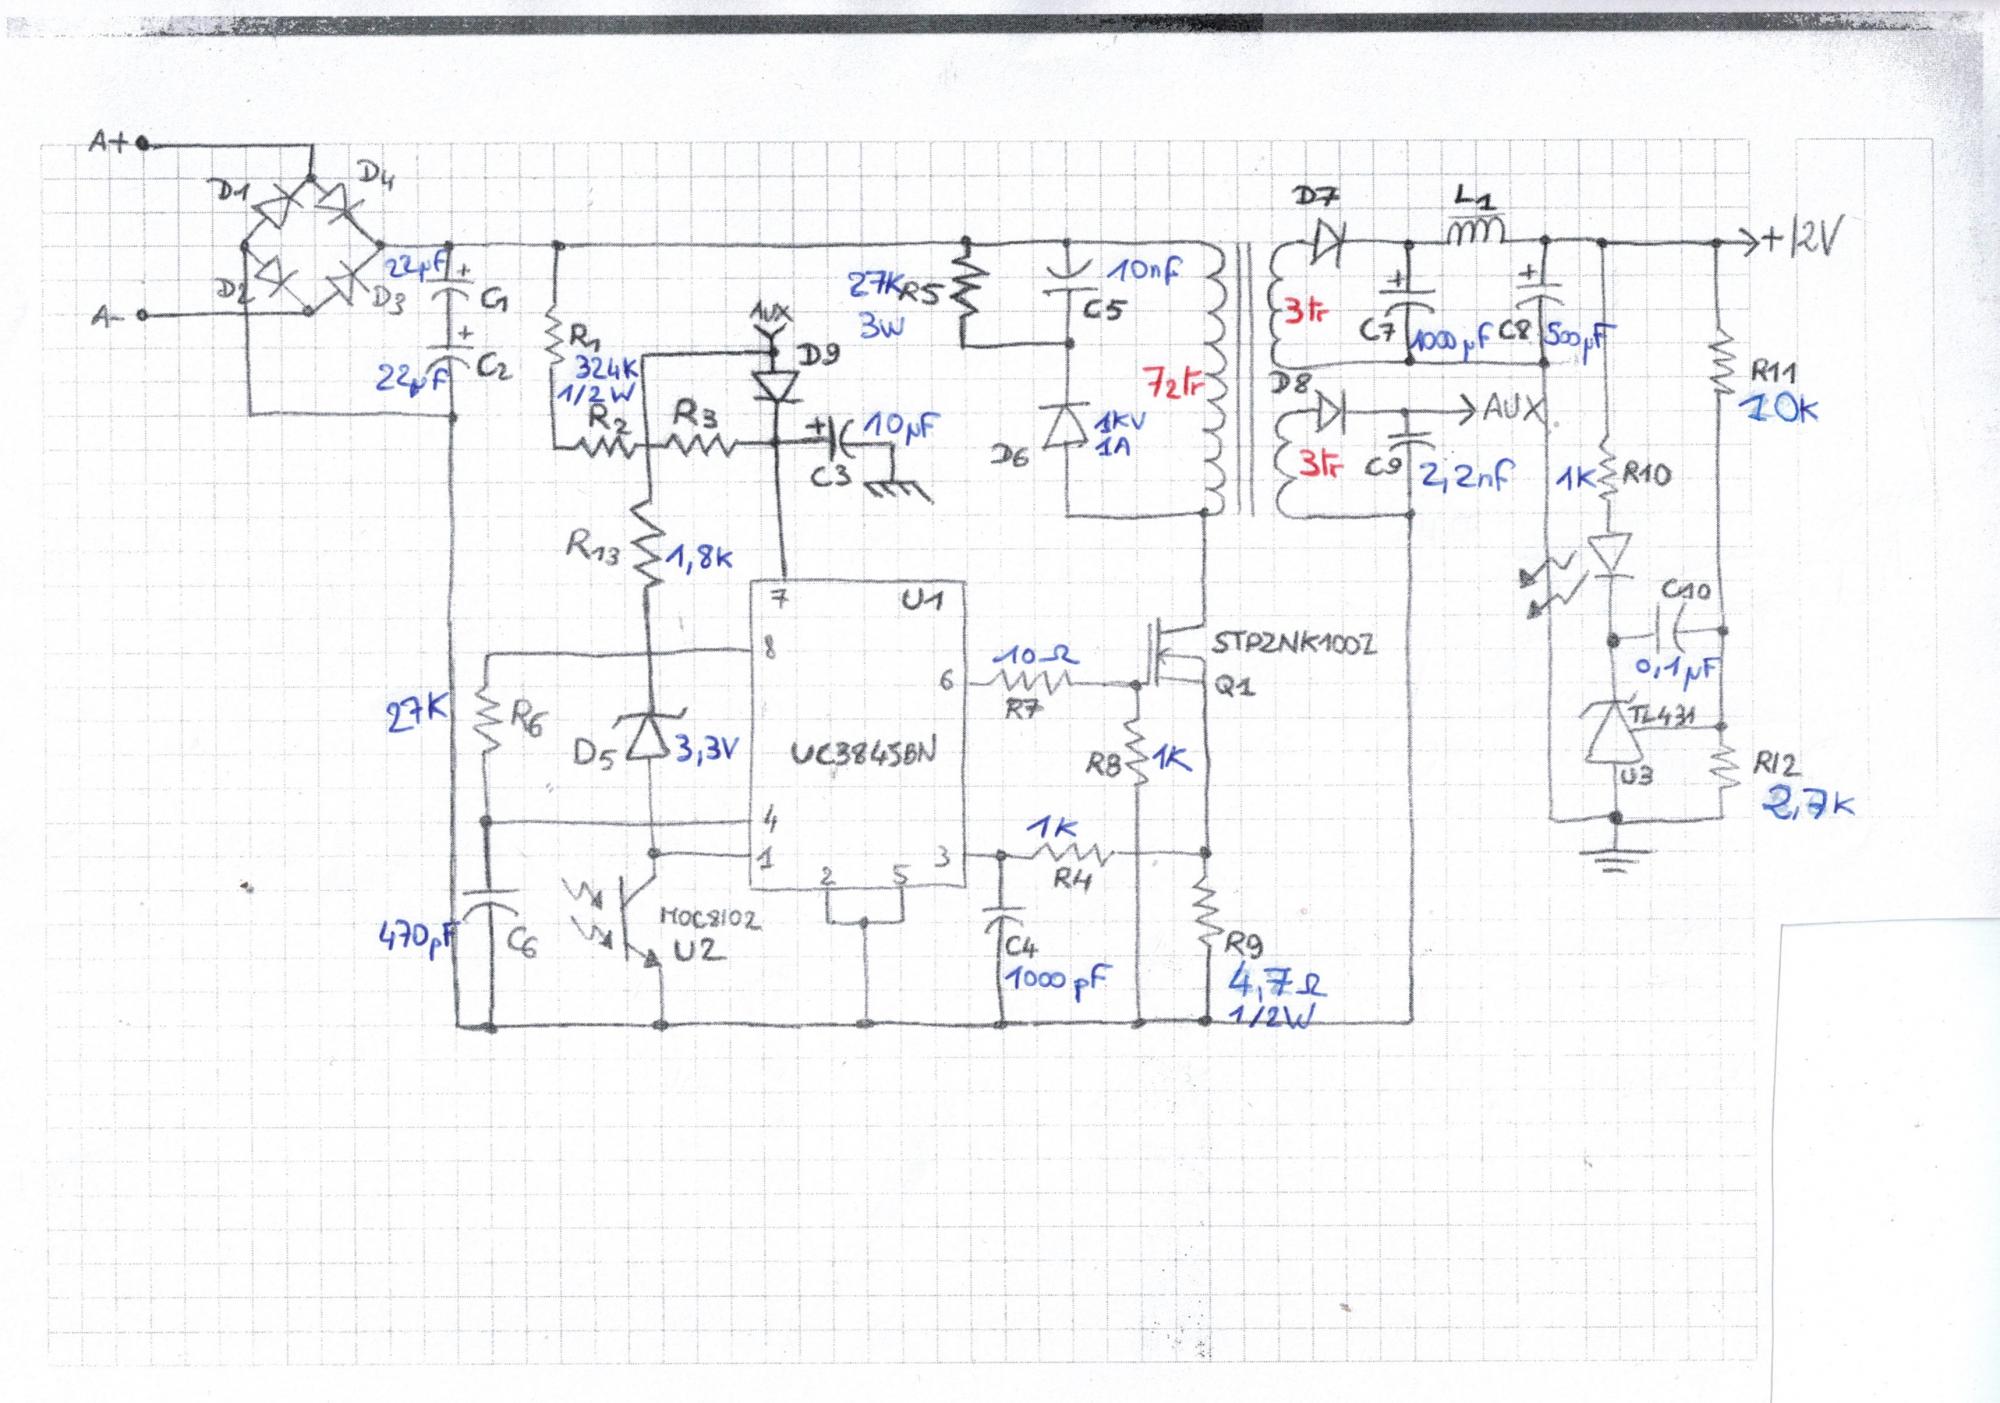 A+
A-
D1
D4
D2
D3
22µF
C1
22µF
C2
R1
324K
1/2W
R2
R3
AUX
D9
10µF
C3
27K
R5
3W
10nF
C5
D6
1KV
1A
72tr
3tr
3tr
D7
L1
+12V
C7
1000µF
C8
500µF
D8
AUX
C9
2,2nF
R11
10K
1K
R10
C10
0,1µF
TL431
U3
R12
2,7K
R13
1,8K
U1
7
8
6
UC3845BN
4
1
2
5
3
27K
R6
D5
3,3V
10Ω
R7
STP2NK100Z
Q1
R8
1K
1K
R4
470pF
C6
MOC8102
U2
C4
1000pF
R9
4,7Ω
1/2W